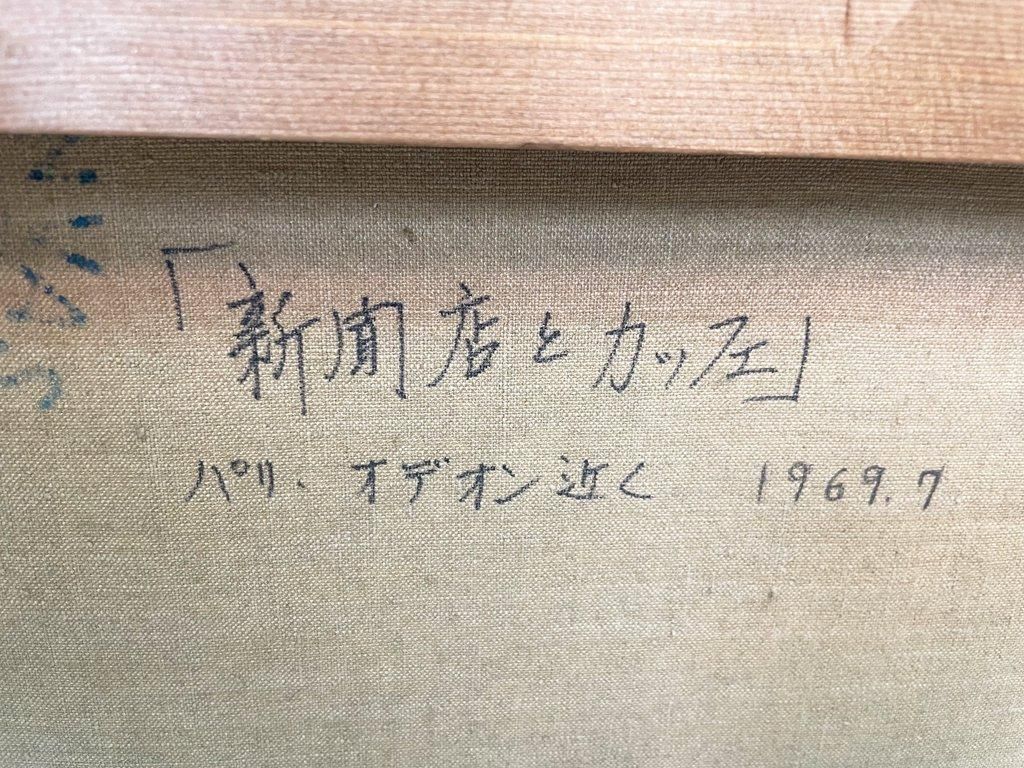 「新聞店とカッフェ」
パリ、オデオン近く 1969.7